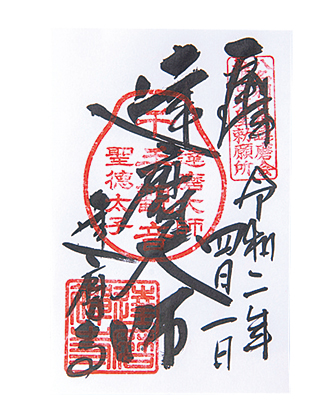 令和二年
四月一日
達磨大師
達磨大師
千手観音
聖徳太子
達磨寺
勅願所